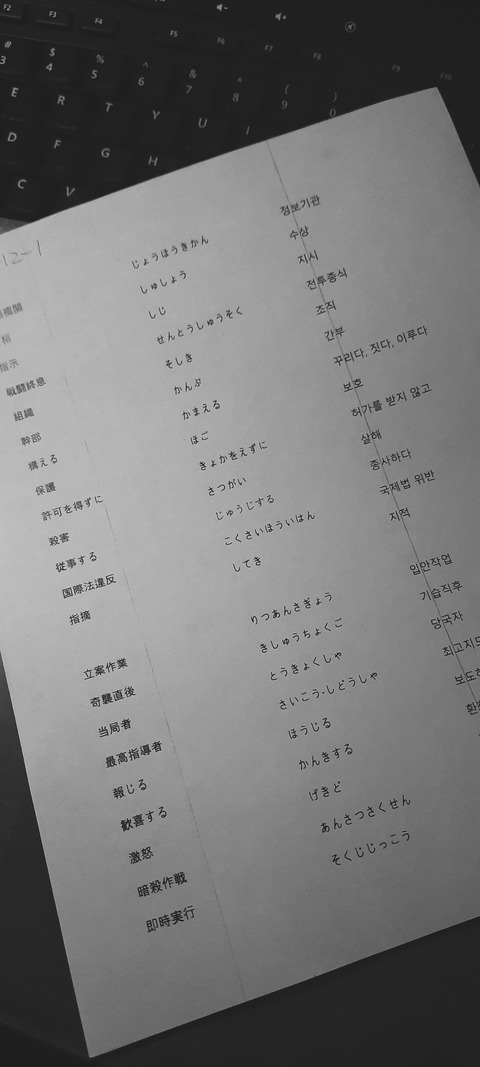 F2 F3 F4 F5 F6 F7 F8 F9 F10
# $ % ^ & * ( )
3 4 5 6 7 8 9 0
E R T Y U I
D F G H
C V
12-1
機関 じょうほうきかん 정보기관
相 しゅしょう 수상
指示 しじ 지시
戦闘終息 せんとうしゅうそく 전투종식
組織 そしき 조직
幹部 かんぶ 간부
構える かまえる 꾸리다, 짓다, 이루다
保護 ほご 보호
許可を得ずに きょかをえずに 허가를 받지 않고
殺害 さつがい 살해
従事する じゅうじする 종사하다
国際法違反 こくさいほういはん 국제법 위반
指摘 してき 지적
立案作業 りつあんさぎょう 입안작업
奇襲直後 きしゅうちょくご 기습직후
当局者 とうきょくしゃ 당국자
最高指導者 さいこう-しどうしゃ 최고지도
報じる ほうじる 보도
歓喜する かんきする 환
激怒 げきど
暗殺作戦 あんさつさくせん
即時実行 そくじじっこう